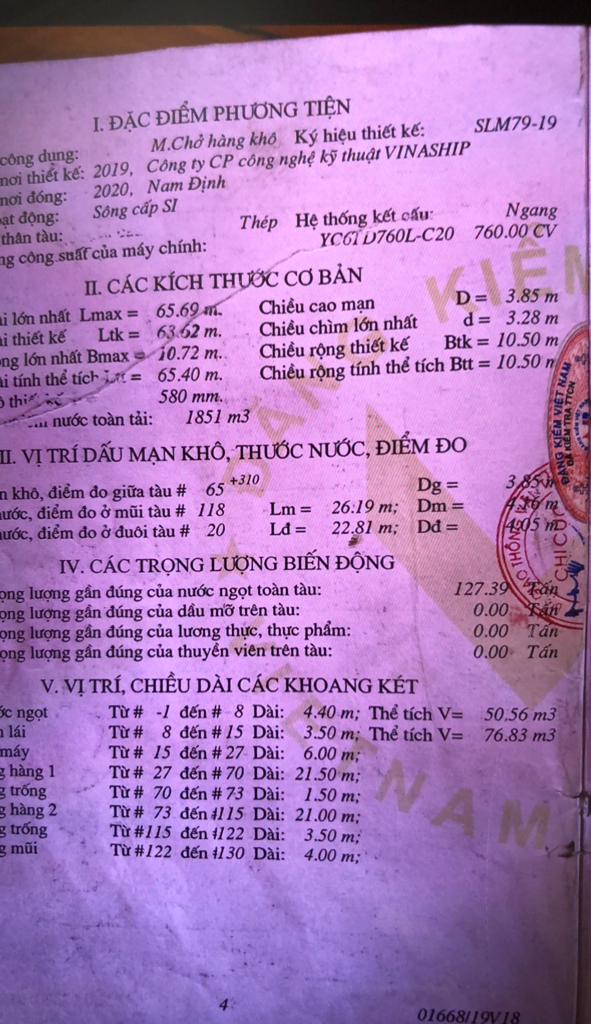 I. ĐẶC ĐIỂM PHƯƠNG TIỆN
công dụng: M.Chở hàng khô Ký hiệu thiết kế: SLM79-19
nơi thiết kế: 2019, Công ty CP công nghệ kỹ thuật VINASHIP
nơi đóng: 2020, Nam Định
ạt động: Sông cấp SI
thân tàu: Thép Hệ thống kết cấu: Ngang
ng công suất của máy chính: YC6TD760L-C20 760.00 CV
II. CÁC KÍCH THƯỚC CƠ BẢN
ài lớn nhất Lmax = 65.69 m. Chiều cao mạn D = 3.85 m
ài thiết kế Ltk = 63.62 m. Chiều chìm lớn nhất d = 3.28 m
ộng lớn nhất Bmax = 10.72 m. Chiều rộng thiết kế Btk = 10.50 m
ài tính thể tích = 65.40 m. Chiều rộng tính thể tích Btt = 10.50 m
580 mm.
nước toàn tải: 1851 m3
II. VỊ TRÍ DẤU MẠN KHÔ, THƯỚC NƯỚC, ĐIỂM ĐO
n khô, điểm đo giữa tàu # 65 +310 Dg = 3.85 m
nước, điểm đo ở mũi tàu # 118 Lm = 26.19 m; Dm =
nước, điểm đo ở đuôi tàu # 20 Lđ = 22.81 m; Dđ = 4.05 m
IV. CÁC TRỌNG LƯỢNG BIẾN ĐỘNG
ọng lượng gần đúng của nước ngọt toàn tàu: 127.39 Tấn
ọng lượng gần đúng của dầu mỡ trên tàu: 0.00 Tấn
ọng lượng gần đúng của lương thực, thực phẩm: 0.00 Tấn
ọng lượng gần đúng của thuyền viên trên tàu: 0.00 Tấn
V. VỊ TRÍ, CHIỀU DÀI CÁC KHOANG KÉT
ớc ngọt Từ # -1 đến # 8 Dài: 4.40 m; Thể tích V= 50.56 m3
lái Từ # 8 đến # 15 Dài: 3.50 m; Thể tích V= 76.83 m3
máy Từ # 15 đến # 27 Dài: 6.00 m;
g hàng 1 Từ # 27 đến # 70 Dài: 21.50 m;
g trống Từ # 70 đến # 73 Dài: 1.50 m;
g hàng 2 Từ # 73 đến #115 Dài: 21.00 m;
g trống Từ #115 đến #122 Dài: 3.50 m;
g mũi Từ #122 đến #130 Dài: 4.00 m;
4
01668/19V18
ĐĂNG KIỂM
VIỆT NAM
ĐĂNG KIỂM VIỆT NAM
ĐÃ KIỂM TRA TTCN
CHI CỤC